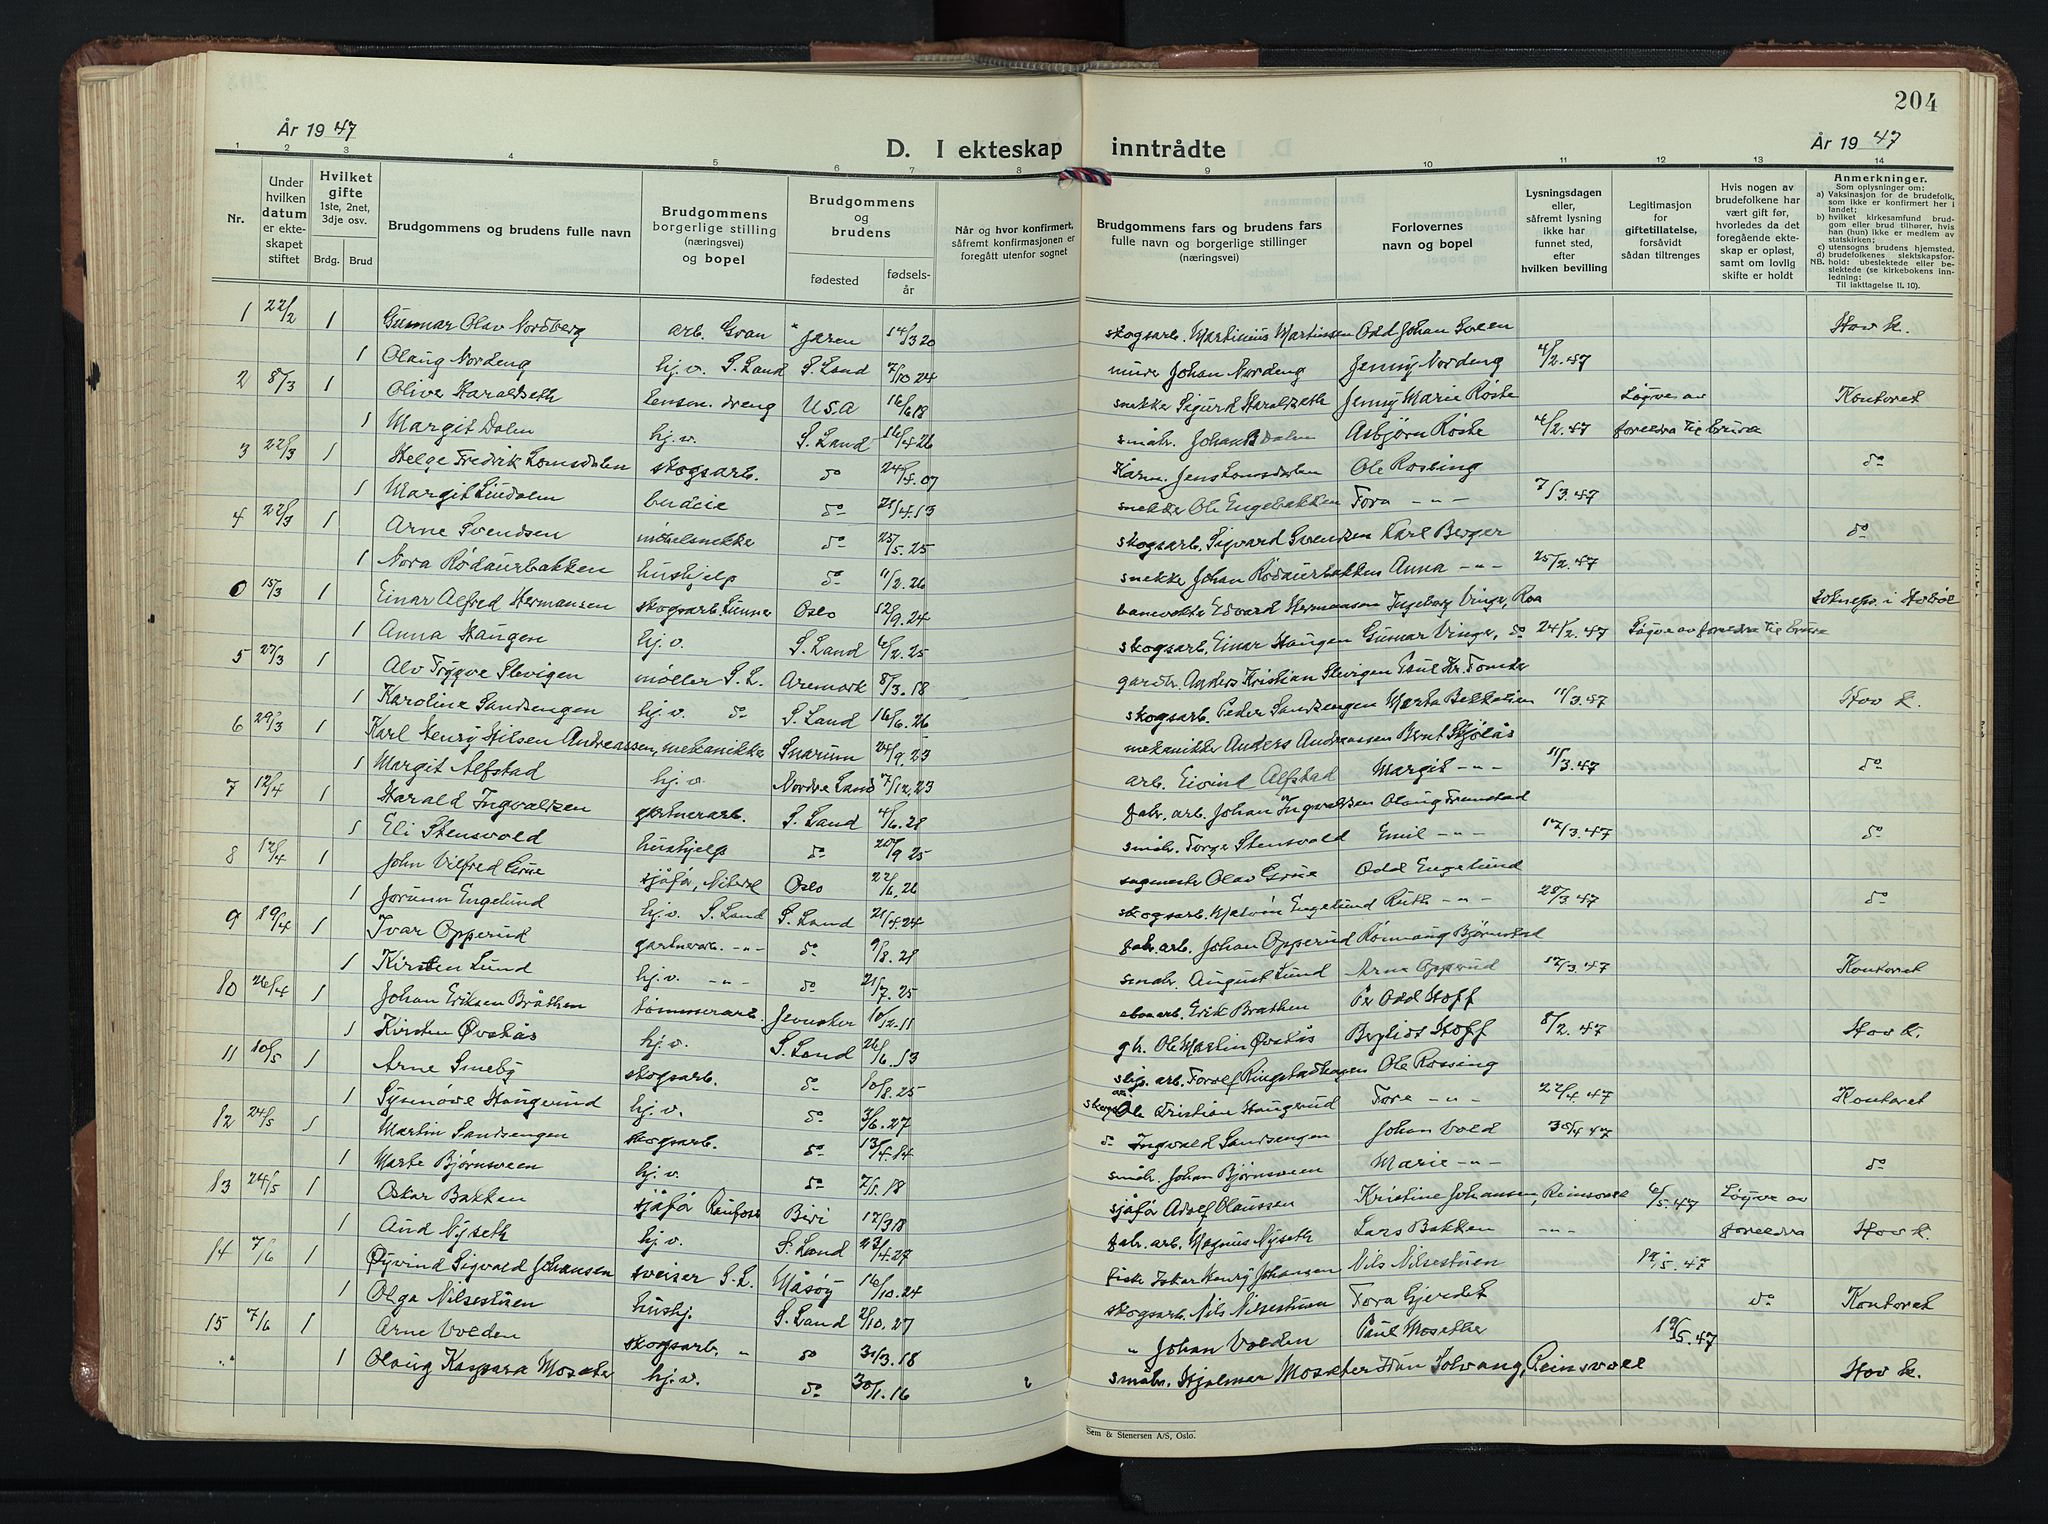 204
År 1947
D. I ekteskap inntrådte
År 1947
1 2 3 4 5 6 7 8 9 10 11 12 13 14
Nr.
Under hvilken datum er ekteskapet stiftet
Hvilket gifte 1ste, 2net, 3dje osv.
Brdg. Brud
Brudgommens og brudens fulle navn
Brudgommens borgerlige stilling (næringsvei) og bopel
Brudgommens og brudens
fødested
fødselsår
Når og hvor konfirmert, såfremt konfirmasjonen er foregått utenfor sognet
Brudgommens fars og brudens fars fulle navn og borgerlige stillinger (næringsvei)
Forlovernes navn og bopel
Lysningsdagen eller, såfremt lysning ikke har funnet sted, efter hvilken bevilling
Legitimasjon for giftetillatelse, forsåvidt sådan tiltrenges
Hvis nogen av brudefolkene har vært gift før, hvorledes da det foregående ekteskap er opløst, samt om lovlig skifte er holdt
Anmerkninger.
Som oplysninger om:
a) Vaksinasjon for de brudefolk, som ikke er konfirmert her i landet;
b) hvilket kirkesamfund brudgom eller brud tilhører, hvis han (hun) ikke er medlem av statskirken;
c) utensogns brudens hjemsted.
d) brudefolkenes slektskapsforhold: ubeslektede eller beslektede (se kirkebokens innledning:
NB. Til iakttagelse II, 10).
1 22/2 1 Gunnar Olav Nordberg arb. Gran Jaren 14/3 20 skogsarb. Martinius Martinsen Odd Johan Sveen Hov k.
1 Olaug Nordeng hj.v. S. Land S. Land 7/10 24 murer Johan Nordeng Jenny Nordeng 4/2.47
2 8/3 1 Oliver Haraldseth lensm. dreng U.S.A 16/6 18 snekker Sigurd Haraldseth Jenny Marie Røste Løyve av Kontoret
1 Margit Dalen hj.v. S. Land 16/4 26 småbr. Johan B Dalen Asbjørn Røste 4/2.47 foreldra til brura
3 22/3 1 Helge Fredrik Lomsdalen skogsarb. do 24/4.07 Jens Lomsdalen Ole Rossing do
1 Margit Lindalen budeie do 25/4.13 snekker Ole Engebakken Tora -"- 7/3.47
4 22/3 1 Arne Svendsen møbelsnekke do 25/5.25 skogsarb. Sigvard Svendsen Karl Berger do
1 Nora Rødaurbakken hushjelp do 11/2.26 snekke Johan Rødaurbakken Anna -"- 25/2.47
0 15/3 1 Einar Alfred Hermansen skogsarb. Lunner Oslo 12/9.24 banevokter Edvard Hermansen Ingeborg Vinger, Roa
1 Anna Haugen hj.v. S. Land 6/2.25 skogsarb. Einar Haugen Gunnar Vinger, do 24/2.47 Løyve av foreldra til brura
5 27/3 1 Alv Trygve Slevigen møller S.L. Aremark 8/3.18 gardbr. Anders Kristian Slevigen Paul Kr. Tomter
1 Karoline Sandsengen hj.v. do S. Land 16/6.26 skogsarb. Peder Sandsengen Marta Bakkalien 11/3.47 Hov k.
6 29/3 1 Karl Henry Nilsen Andreassen, mekanikke Snarum 24/9.23 mekanikke Anders Andreassen Bernt Skjølås
1 Margit Alfstad hj.v. Nordre Land 7/12.23 arb. Eivind Alfstad Margit -"- 11/3.47 do
7 12/4 1 Harald Ingvaldsen gartnerarb. S. Land 4/6.28 fabr. arb. Johan Ingvaldsen Olaug Framstad
1 Eli Stensvold hushjelp do 20/9 25 småbr. Torge Stensvold Emil -"- 12/3.47 do
8 12/4 1 John Vilfred Grue sjåfør, Nitedal Oslo 22/6.26 sagmester Olav Grue Odd Engelund
1 Jorunn Engelund hj.v. S. Land S. Land 21/4.24 skogsarb. Engelund Ruth -"- 28/3.47 do
9 19/4 1 Ivar Opperud gartnerarb. -"- do 9/8.28 fabr. arb. Johan Opperud Rønnaug Bjørnstad
1 Kirsten Lund hj.v. -"- do 21/7.25 småbr. August Lund Arne Opperud 12/3.47 Kontoret
10 26/4 1 Johan Eriksen Bråthen tømmerarb. Jevnaker 10/12.11 Erik Bråthen Per Odd Hoff
1 Kirsten Øvstås hj.v. S. Land 26/6.13 gbr. Ole Martin Øvstås Bergliot Hoff 8/2.47 Hov k.
11 10/5 1 Arne Smeby skogsarb. do 10/8.25 slip. arb. Torolf Ringstadhagen Ole Rossing
1 Synnøve Haugerud hj.v. do 3/6.27 skogsarb. Ole Kristian Haugerud Tora -"- 22/4.47 Kontoret
12 24/5 1 Martin Sandsengen skogsarb. do 13/4.14 do Ingvald Sandsengen Johan Vold 30/4 47
1 Marte Bjørnsveen hj.v. do 7/1.18 småbr. Johan Bjørnsveen Marie -"- do
13 24/5 1 Oskar Bakken sjåfør Raufoss Biri 17/3 18 sjåfør Adolf Olaussen Kristine Johansen, Reinsvoll 6/5.47 Løyve av
1 Aud Nyseth hj.v. S. Land 23/4.27 fabr. arb. Magnus Nyseth Lars Bakken -"- foreldra Hov k.
14 7/6 1 Øyvind Sigvald Johansen sveiser S.L. Måsøy 16/10.24 Henry Johansen Nils Nilsestuen 19/5.47
1 Olga Nilsestuen hushj. S. Land 2/10.27 skogsarb. Nils Nilsestuen Tora Gjerdet do Kontoret
15 7/6 1 Arne Volden skogsarb. " do 31/3.18 " Johan Volden Paul Moseter 19/5.47
1 Olaug Kaspara Moseter hj.v. do 30/1.16 småbr. Hjalmar Moseter Solvang, Reinsvoll Hov k.
Sem & Stenersen A/S, Oslo.